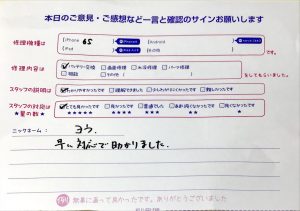 本日のご意見・ご感想など一言と確認のサインお願いします
修理機種は iPhone 6S Android iPad その他 です。
修理内容は バッテリー交換 画面修理 水没修理 パーツ修理
相談 その他 をしてもらいました。
スタッフの説明は 分かりやすかったです 理解できました 少しわかりにくかったです 難しかったです
スタッフの対応は とても良かったです 良かったです 普通でした 悪かったです
★星の数★ ★★★★★ ★★★★ ★★★ ★★ ★
ニックネーム:
早い対応で助かりました。
無事に直って良かったです。ありがとうございました